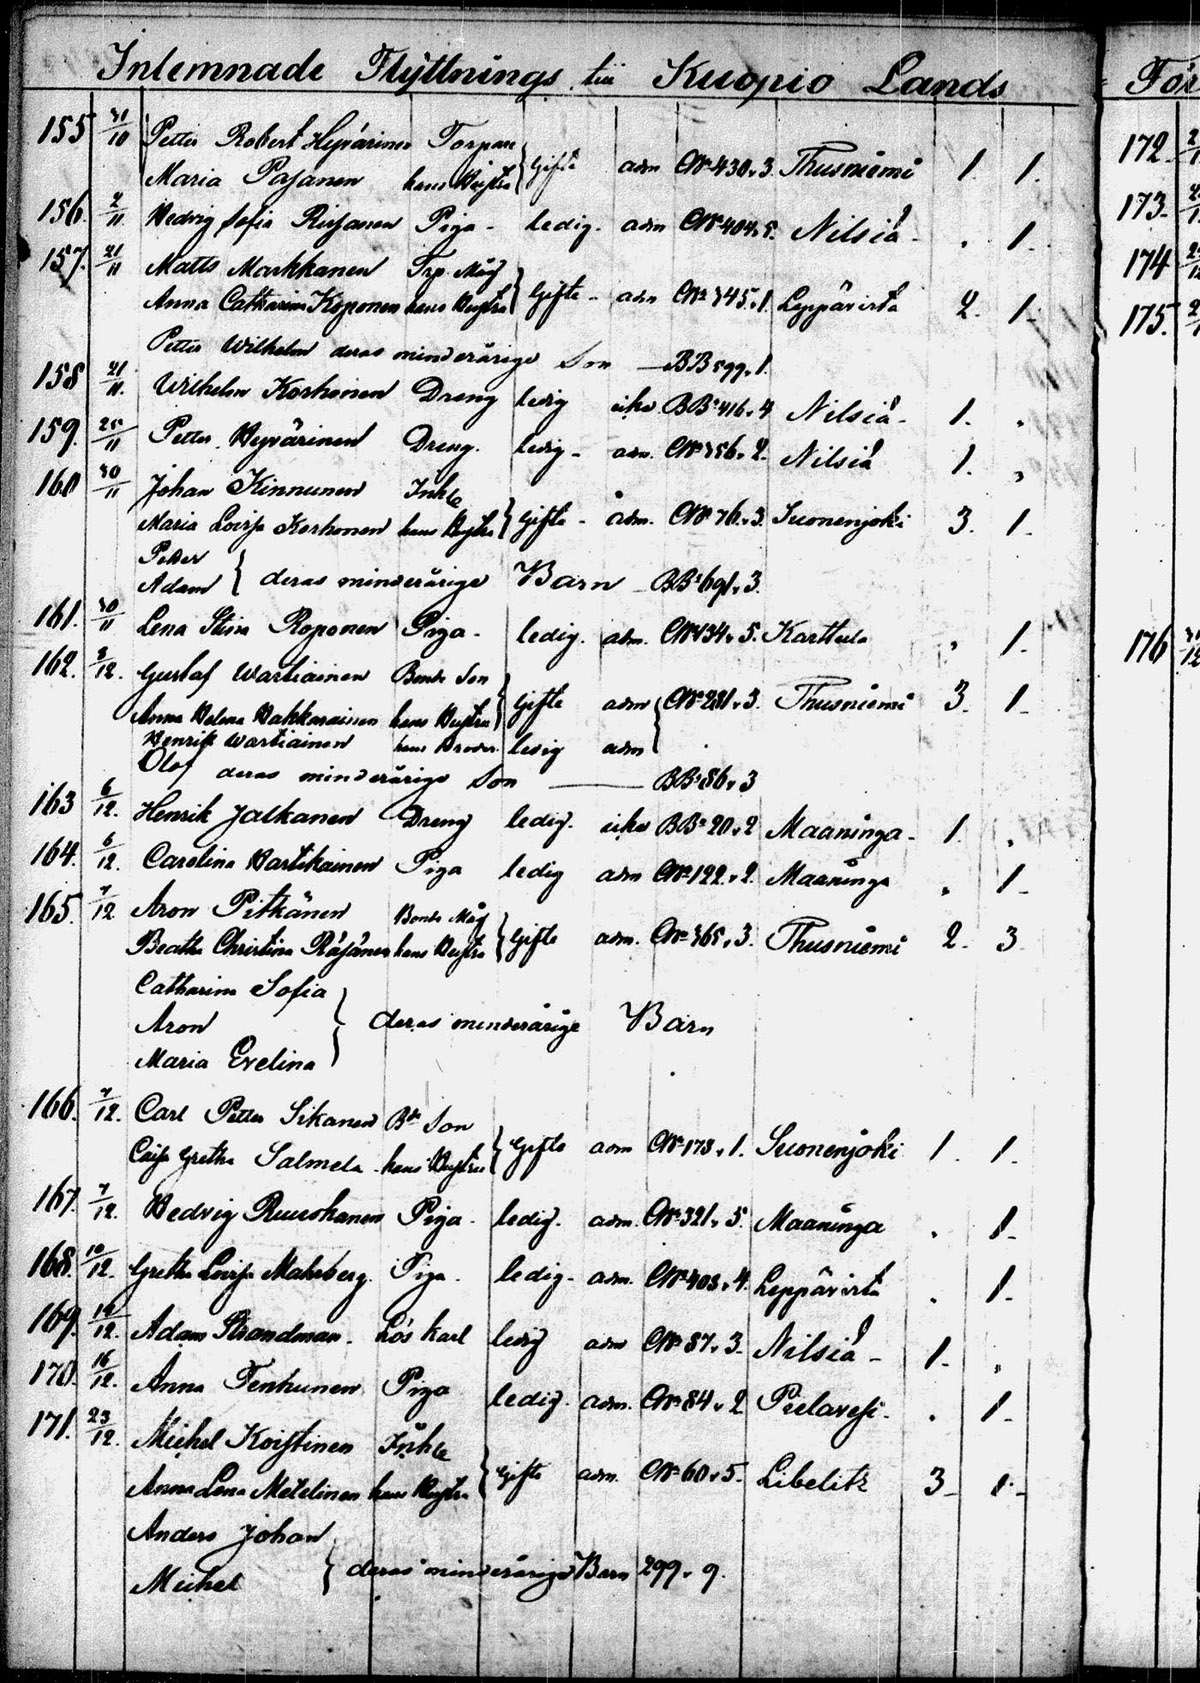 Inlemnade Flyttnings till Kuopio Lands
155 31/10 Petter Robert Hyvärinen Torpare
Maria Pajanen hans Hustru } Gifte adm CN° 430. v. 3. Thusniemi 1. 1.
156. 2/11 Hedvig Sofia Piiganen Piga - ledig. adm CN° 404. v. 5. Nilsiä - . 1.
157. 21/11 Matts Markkanen Trp. Måg
Anna Catharina Koponen hans Hustru } Gifte - adm CN° 345. v. 1. Leppävirta 2. 1.
Petter Wilhelm deras minderårige Son — BB 599. v. 1.
158 21/11. Wilhelm Korhonen Dreng ledig icke BB: 416. v. 4 Nilsiä - 1. .
159. 25/11 Petter Hyvärinen Dreng. ledig - adm. CN° 356. v. 2. Nilsiä 1. „
160 30/11 Johan Kinnunen Inh:e
Maria Lovisa Korhonen hans Hustru } Gifte - adm. CN° 76. v. 3. Suonenjoki 3. 1.
Petter
Adam } deras minderårige Barn BB: 691. v. 3.
161. 30/11 Lena Stina Roponen Piga - ledig. adm. CN° 134. v. 5. Karttula „ 1.
162. 3/12. Gustaf Wartiainen Bonde Son
Anna Helena Hakkarainen hans Hustru } Gifte adm CN° 281. v. 3. Thusniemi 3. 1.
Henrik Wartiainen hans Broder ledig adm
Olof deras minderårige Son — BB: 86. v. 3
163 6/12. Henrik Jalkanen Dreng ledig. icke BB: 20. v. 2 Maaninga - 1. .
164. 6/12. Carolina Hartikainen Piga ledig adm CN° 122. v. 2. Maaninga „ 1.
165. 7/12 Aron Pitkänen Bonde Måg
Beatha Christina Räsänen hans Hustru } Gifte adm. CN° 365. v. 3. Thusniemi 2. 3
Catharina Sofia
Aron } deras minderårige Barn
Maria Evelina
166. 7/12. Carl Petter Sikanen Bde Son
Caisa Gretha Salmela hans Hustru } Gifte adm CN° 173. v. 1. Suonenjoki 1. 1.
167. 7/12. Hedvig Ruuskanen Piga - ledig. adm. CN° 321. v. 5. Maaninga . 1.
168. 10/12. Gretha Lovisa Mahrberg. Piga - ledig - adm. CN° 403. v. 4. Leppävirta . 1.
169. 14/12. Adam Strandman. Lös karl ledig adm CN° 87. v. 3. Nilsiä - 1. „
170. 16/12. Anna Tenhunen Piga ledig. adm. CN° 84. v. 2 Pielavesi - . 1.
171. 23/12. Michel Koistinen Inh:e
Anna Lena Metelinen hans Hustru } Gifte adm. CN° 60. v. 5. Libelitz 3 - 1 -
Anders Johan
Michel } deras minderårige Barn 299. v. 9.
För
172
173.
174
175.
176